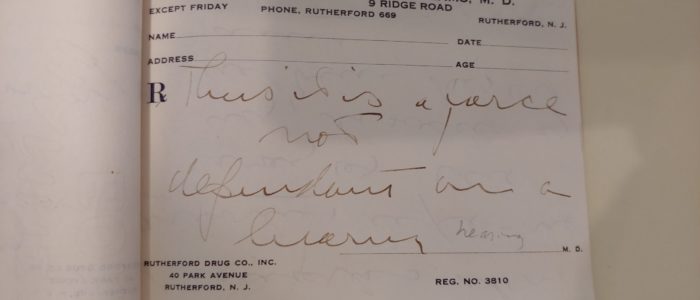 M. D.
EXCEPT FRIDAY
9 RIDGE ROAD
PHONE, RUTHERFORD 669
RUTHERFORD, N. J.
NAME
DATE
ADDRESS
AGE
℞ Thus it is a farce
not
dependant on a
hearing hearing
M. D.
RUTHERFORD DRUG CO., INC.
40 PARK AVENUE
RUTHERFORD, N. J.
REG. NO. 3810